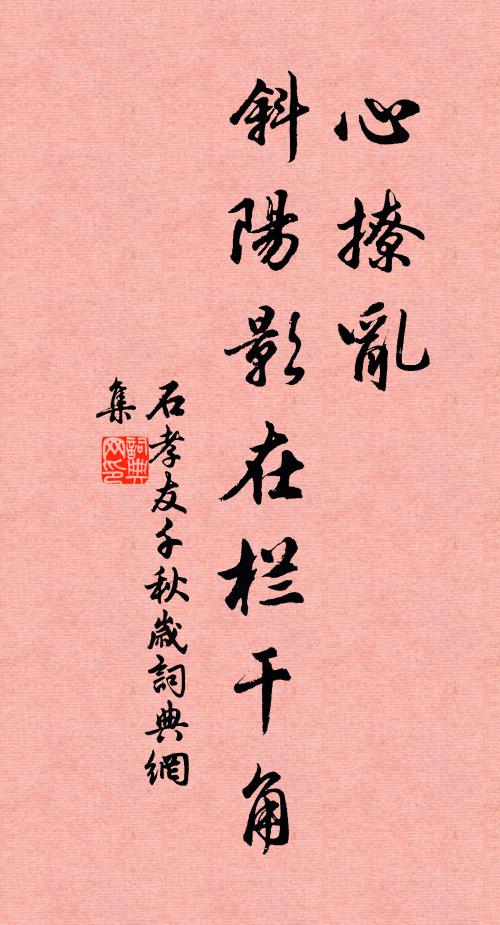 心撩亂
斜陽影在栏干角
石孝友千秋歲詞典網
集
詞典
网印